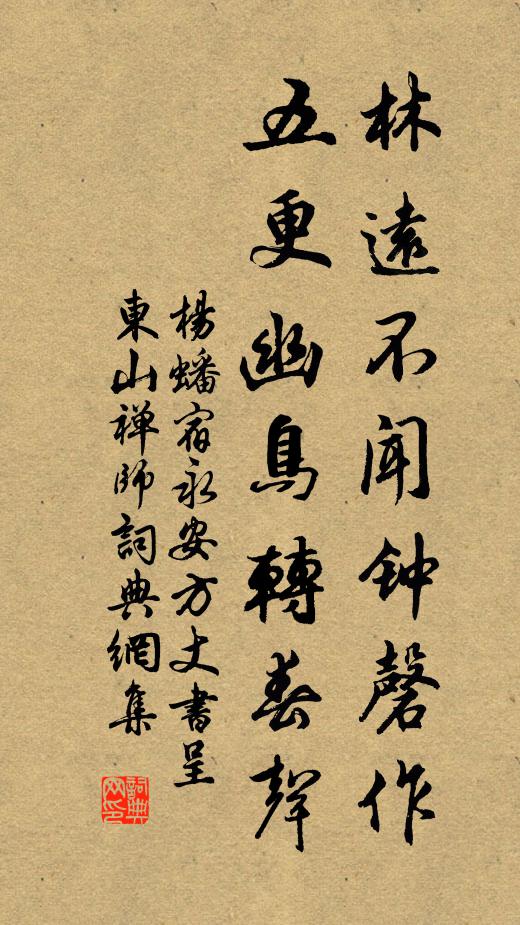 林遠不闻钟磬作
五更幽鳥轉春聲
楊蟠宿永安方丈書呈
東山禅师詞典網集
詞典
网印